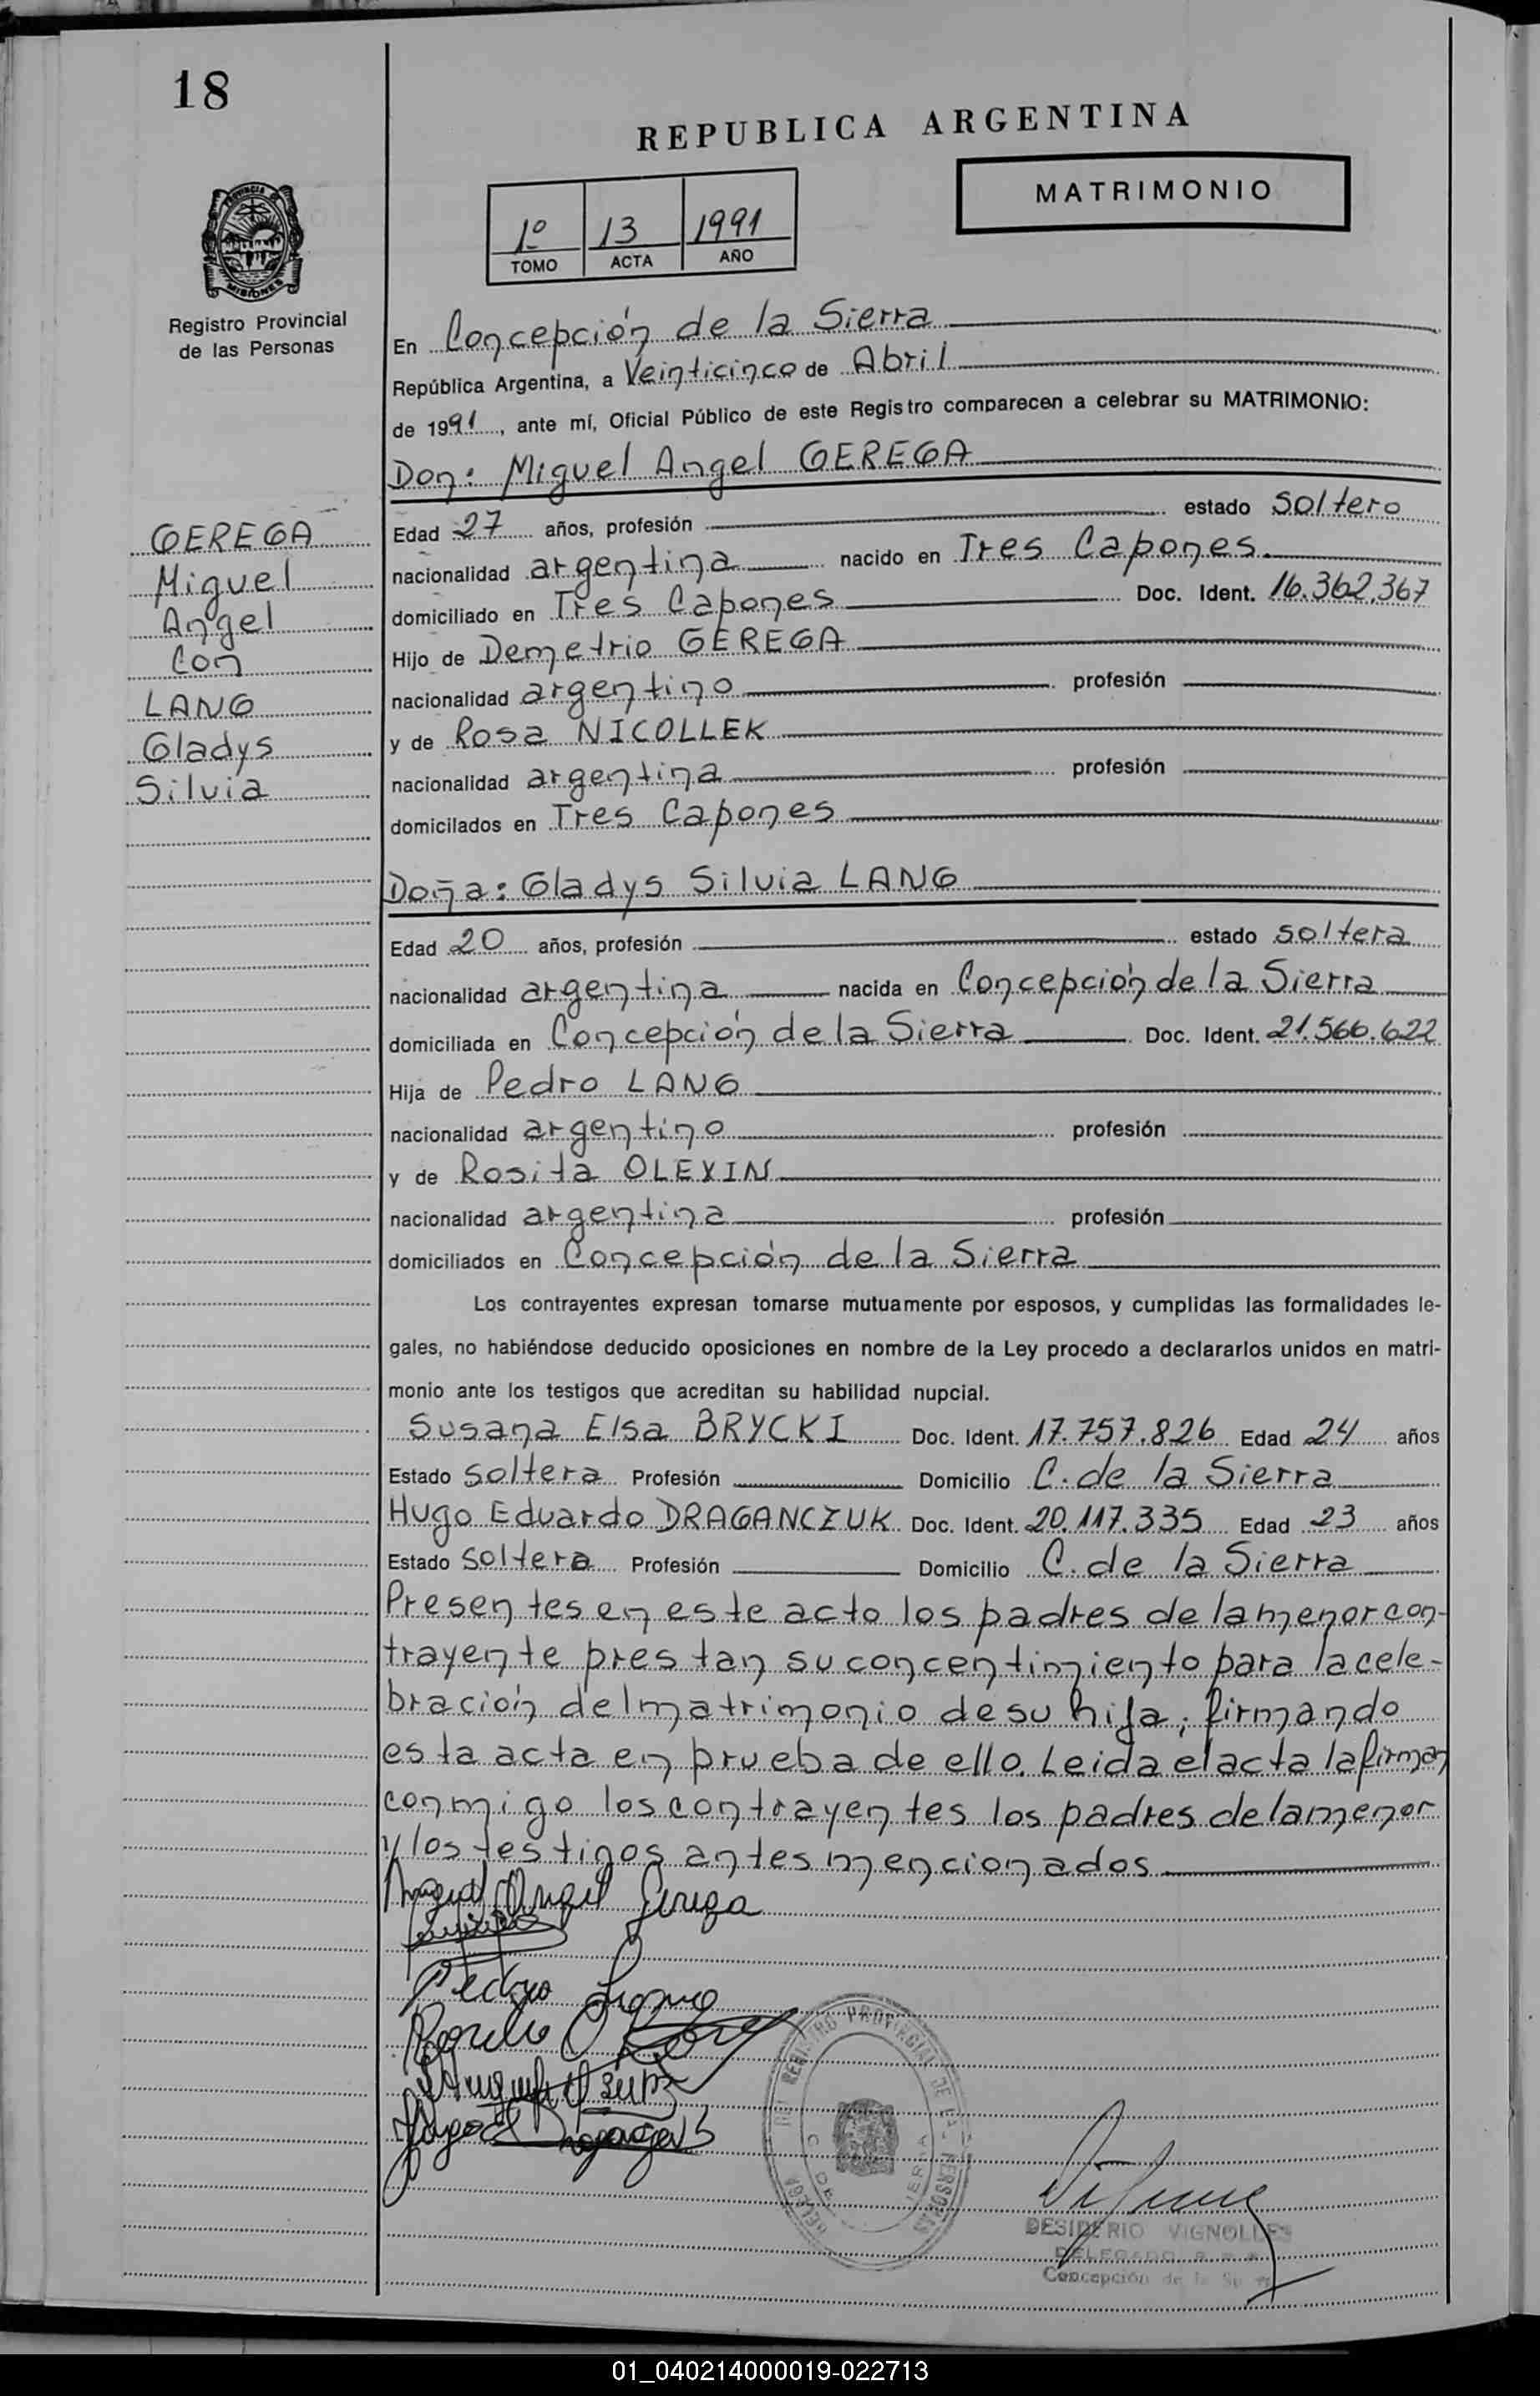 18
REPUBLICA ARGENTINA
MATRIMONIO
1º 13 1991
TOMO ACTA AÑO
PROVINCIA DE
MISIONES
Registro Provincial
de las Personas
En Concepción de la Sierra
República Argentina, a Veinticinco de Abril
de 1991, ante mí, Oficial Público de este Registro comparecen a celebrar su MATRIMONIO:
Don: Miguel Angel GEREGA
GEREGA
Miguel
Angel
Con
LANG
Gladys
Silvia
Edad 27 años, profesión estado soltero
nacionalidad argentina nacido en Tres Capones
domiciliado en Tres Capones Doc. Ident. 16.362.367
Hijo de Demetrio GEREGA
nacionalidad argentino profesión
y de Rosa NICOLLEK
nacionalidad argentina profesión
domicilados en Tres Capones
Doña: Gladys Silvia LANG
Edad 20 años, profesión estado soltera
nacionalidad argentina nacida en Concepción de la Sierra
domiciliada en Concepción de la Sierra Doc. Ident. 21.566.622
Hija de Pedro LANG
nacionalidad argentino profesión
y de Rosita OLEXIN
nacionalidad argentina profesión
domiciliados en Concepción de la Sierra
Los contrayentes expresan tomarse mutuamente por esposos, y cumplidas las formalidades le-
gales, no habiéndose deducido oposiciones en nombre de la Ley procedo a declararlos unidos en matri-
monio ante los testigos que acreditan su habilidad nupcial.
Susana Elsa BRYCKI Doc. Ident. 17.757.826 Edad 24 años
Estado soltera Profesión Domicilio C. de la Sierra
Hugo Eduardo DRAGANCZUK Doc. Ident. 20.117.335 Edad 23 años
Estado soltera Profesión Domicilio C. de la Sierra
Presentes en este acto los padres de la menor con-
trayente prestan su concentimiento para la cele-
bración del matrimonio de su hija, firmando
esta acta en prueba de ello. Leida el acta la firman
conmigo los contrayentes los padres de la menor
y los testigos antes mencionados
Miguel Angel Gerega
Pedro Lang
REGISTRO PROVINCIAL DE LAS PERSONAS
DESIDERIO VIGNOLLES
DELEGADO
Concepción de la
01_040214000019-022713